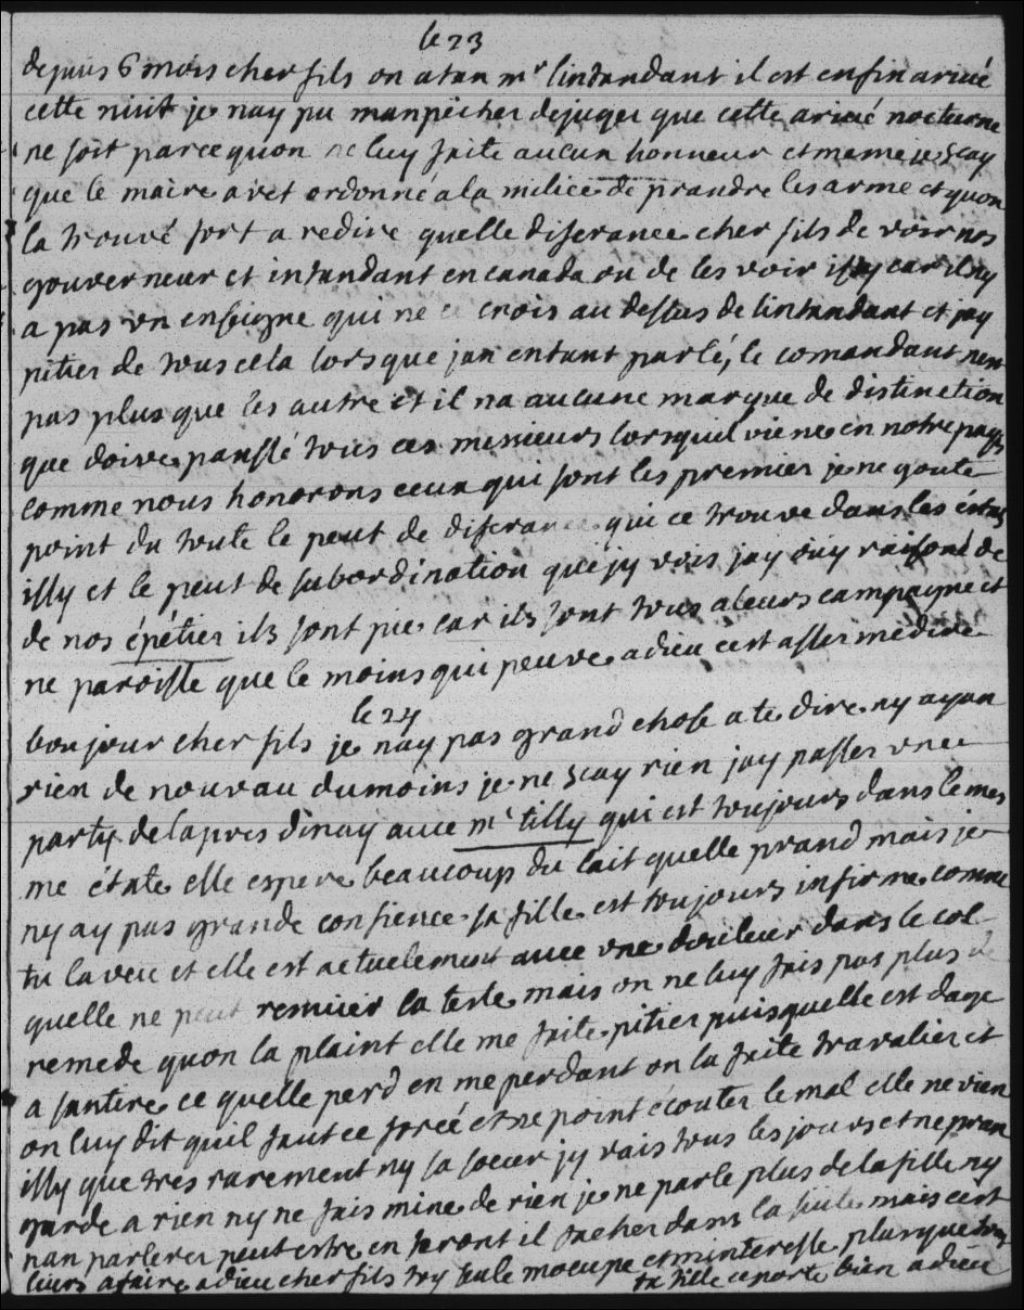 le 23
depuis 6 mois cher fils on atan mr lintandant il est enfin arivé
cette niuit je nay pu manpecher dejuger que cette arivé nocturne
ne soit parcequon ne luy faite aucun honneur et meme je scay
que le maire avet ordonné ala milice de prandre les arme et quon
la trouvé fort a redire quelle diferance cher fils de voir nos
gouverneur et intandant en canada ou de les voir issy car il ny
a pas un enseigne qui ne ce crois au dessus de lintandant et jay
pitier de tous cela lorsque jan entant parlé, le comandant nen
pas plus que les autre et il na aucune marque de distinction
que doive pansse tous ces messieurs lorsquil viene en notre pays
comme nous honorons ceux qui sont les premier je ne goute
point du toute le peut de diferance qui ce trouve dans les éstas
issy et le peut de subordination que jy vois jay oüy raisoné de
de nos épétier ils sont pie car ils sont tous aleurs campagne et
ne paroisse que le moins qui peuve adieu cest asser medire
le 24
bonjour cher fils je nay pas grand chose a te dire ny ayan
rien de nouvau dumoins je ne scay rien jay passer une
party de lapres dinay avec mr tilly qui est toujours dans le mes
me étate elle espere beaucoup du lait quelle prand mais je
ny ay pas grande confience sa fille est toujours infirme comme
tu la veu et elle est actuelement avec une douleur dans le col
quelle ne peut remuier la teste mais on ne luy fais pas plus de
remede quon la plaint elle me faite pitier puisquelle est dage
a santire ce quelle perd en me perdant on la faite travalier et
on luy dit quil faut ce forcé et ne point écouter le mal elle ne vien
issy que tres rarement ny sa soeur jy vais tous les jours et ne pran
garde a rien ny ne fais mine de rien je ne parle plus de la fille ny
nan parlerer peut estre en seront il facher dans la suite mais cest
leurs afaire adieu cher fils toy seule mocupe et minteresse plus que tous
ta fille ceporte bien adieu